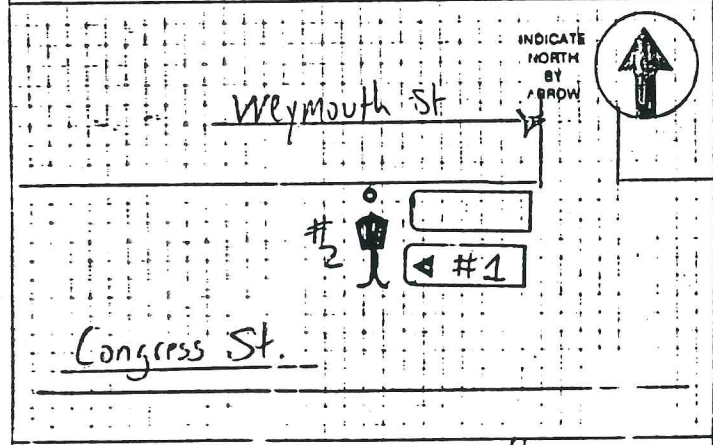 INDICATE
NORTH
BY
ARROW
Weymouth St
#2
#1
Congress St.